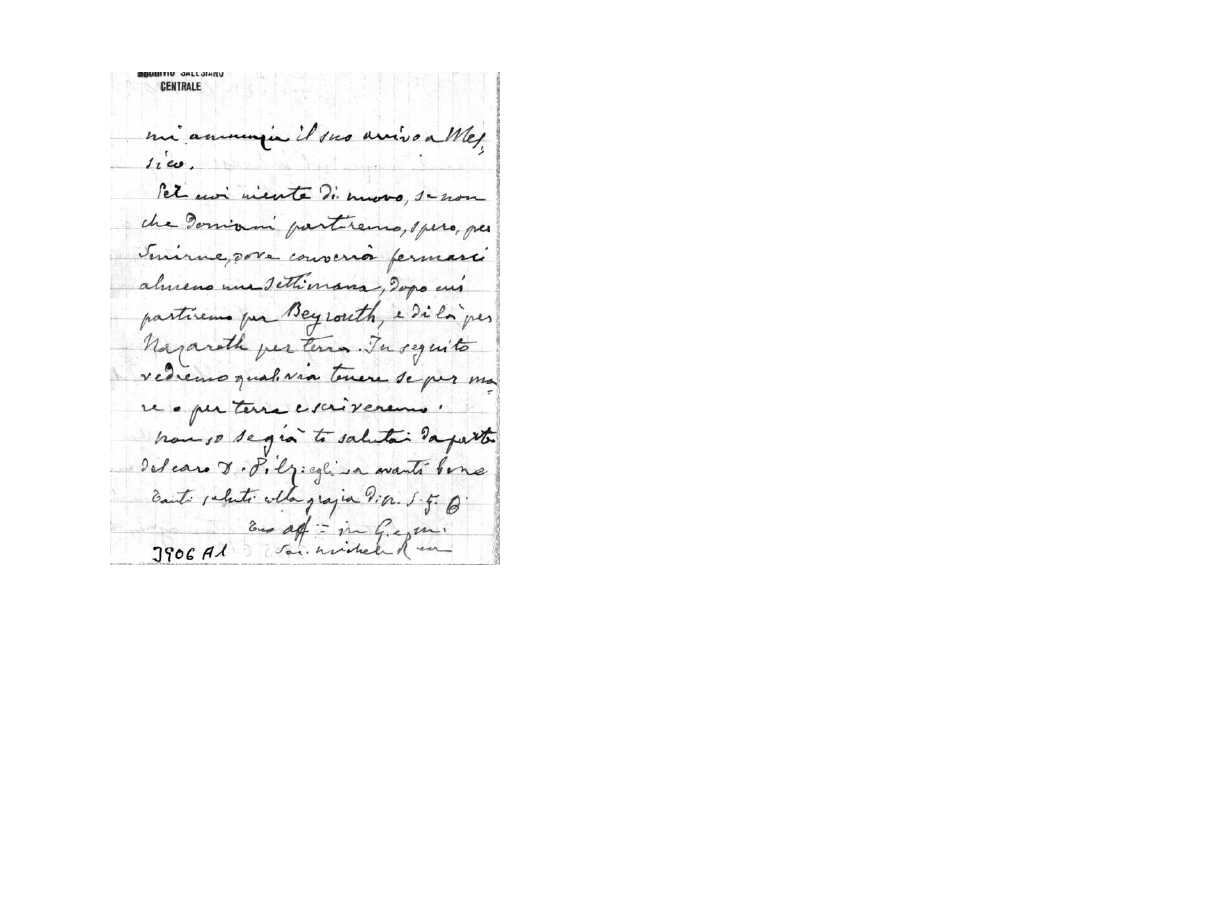 ARCHIVIO SALESIANO
CENTRALE
mi annunzia il suo arrivo a Mes,
sico.
Per noi niente di nuovo, se non
che domani partiremo, spero, per
Smirne, dove converrà fermarci
almeno una settimana, dopo cui
partiremo per Beyrouth, e di là per
Nazareth per terra. In seguito
vedremo qual via tenere se per ma
re o per terra e scriveremo.
Non so se già ti salutai da parte
del caro D. Pilz: egli va avanti bene
Tanti saluti alla grazia di n. S. G. C.
Tuo aff in G. e M.
Sac. Michele Rua
3906 A1